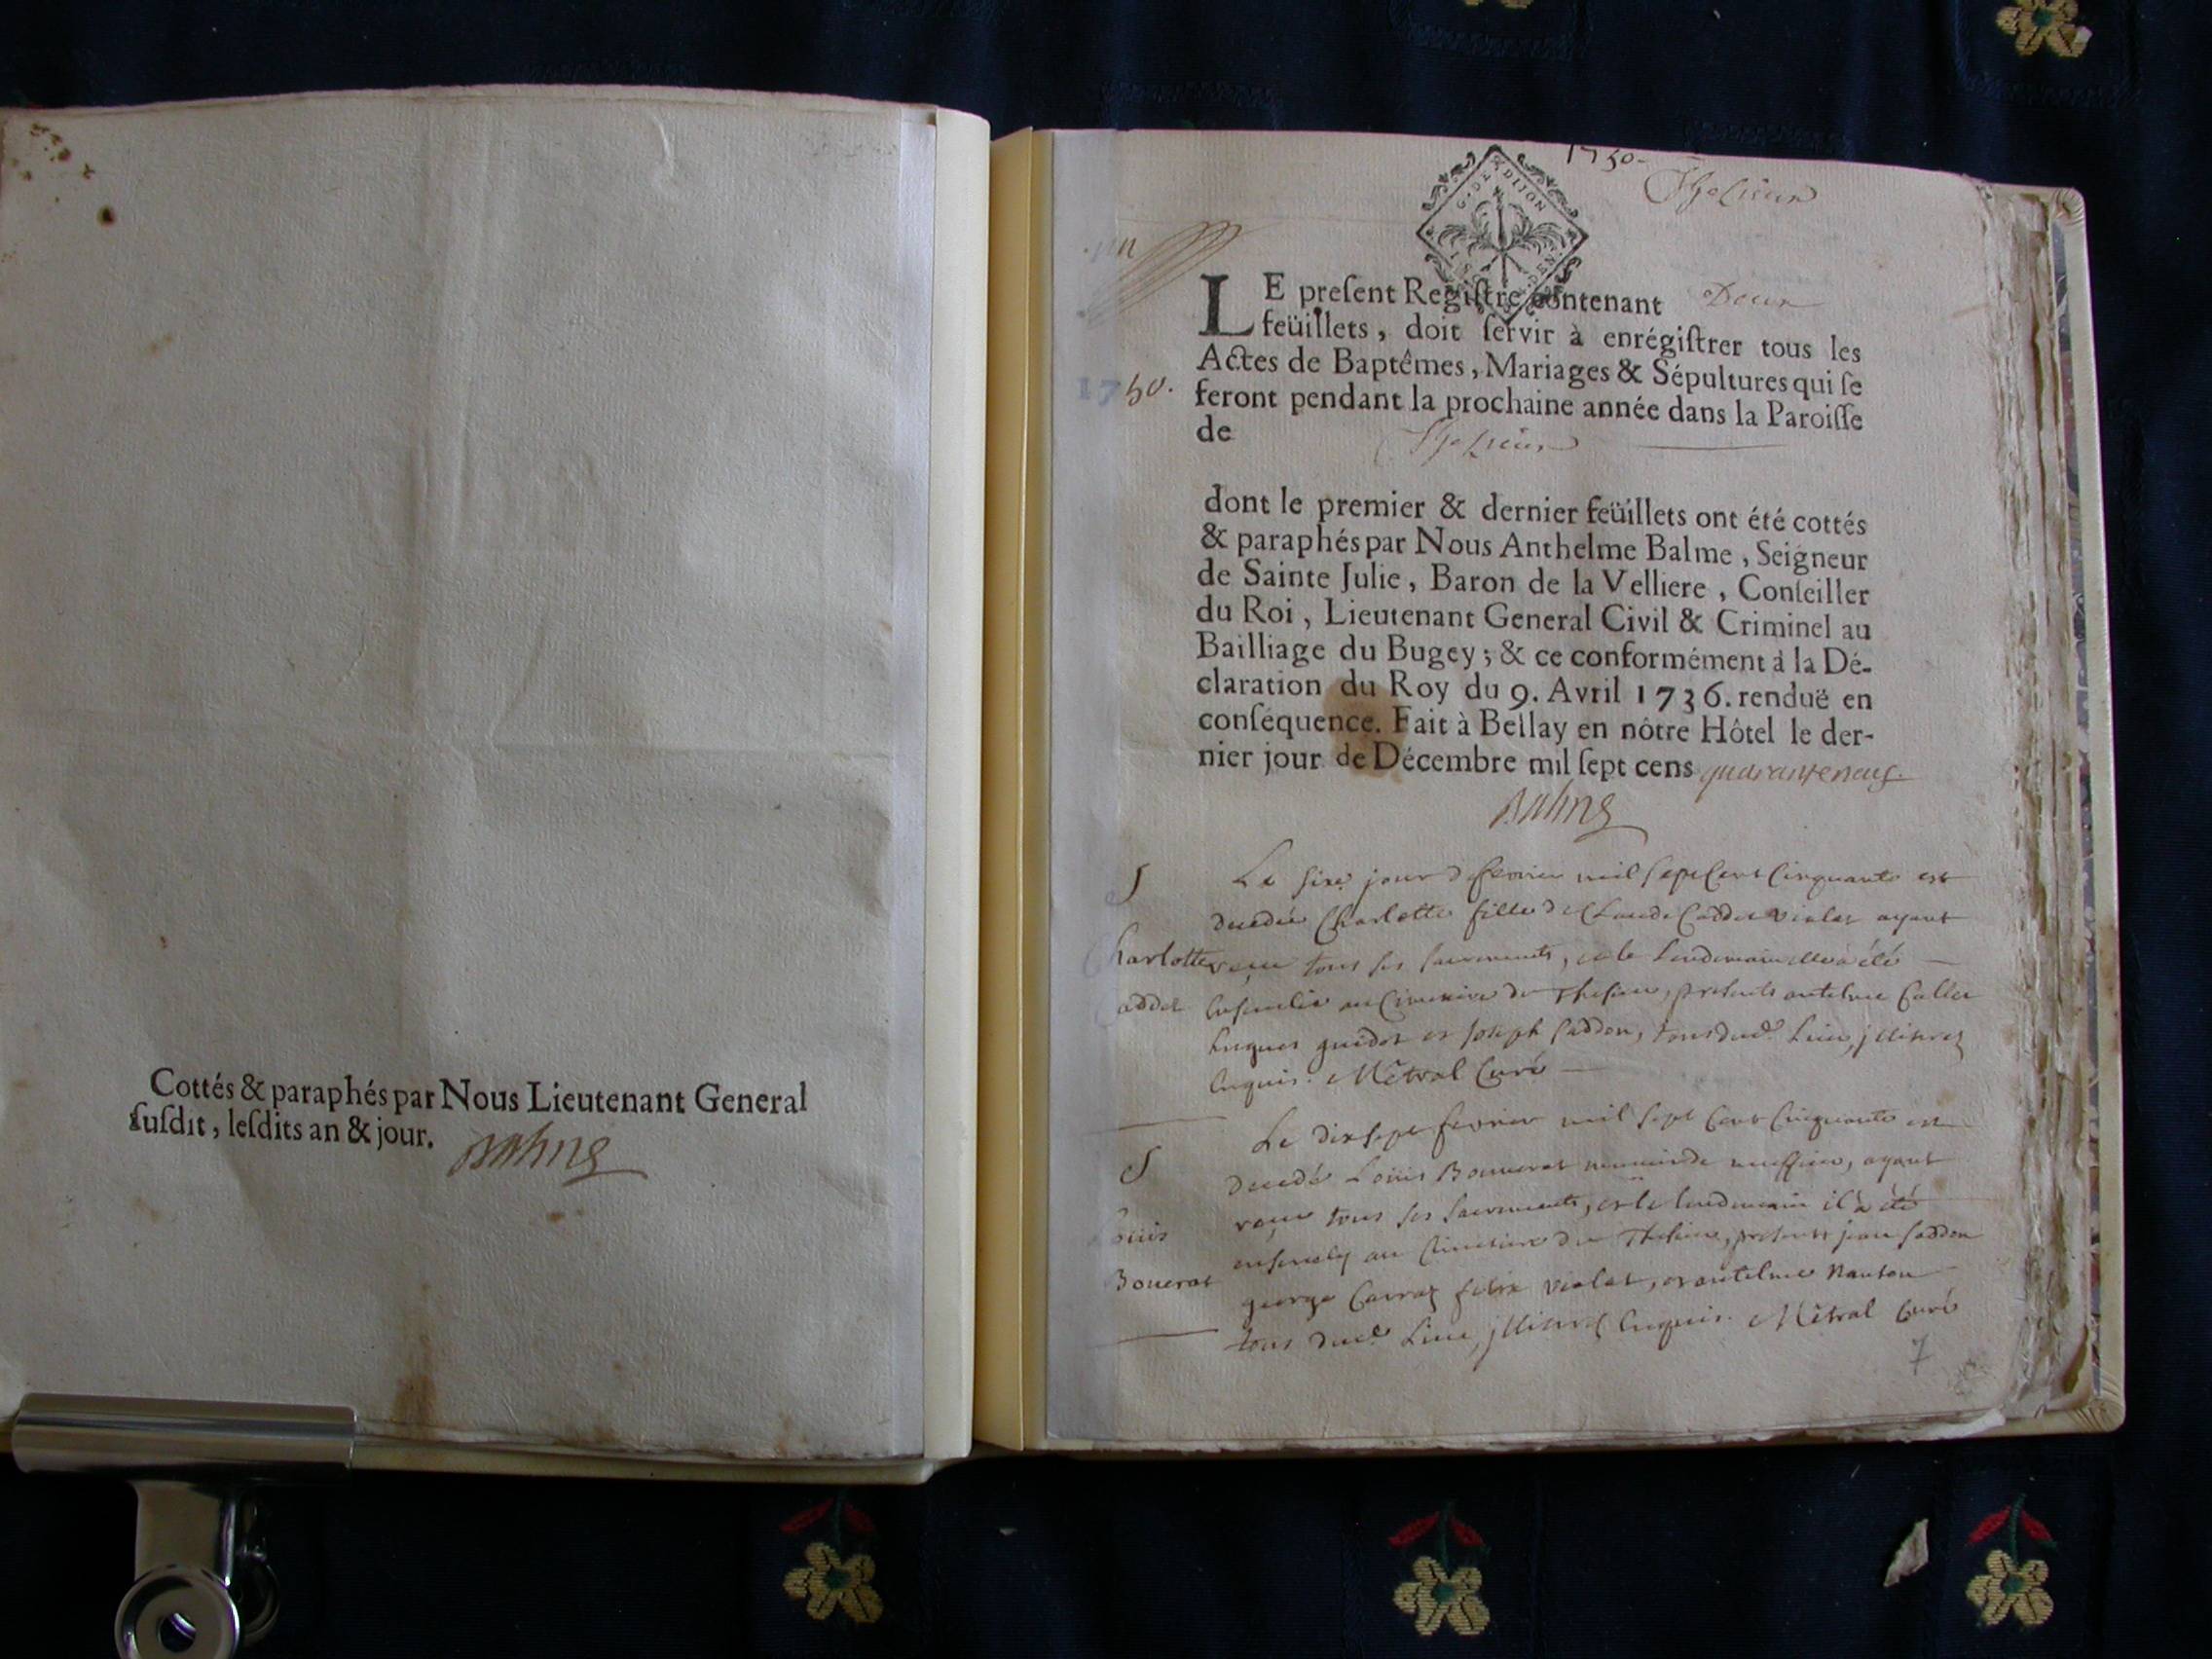 Cottés & paraphés par Nous Lieutenant General
ſuſdit, leſdits an & jour.
Balme
1750.
Thesieux
G. DE DIJON
LE preſent Regiſtre contenant Deux
feüillets, doit ſervir à enrégiſtrer tous les
Actes de Baptêmes, Mariages & Sépultures qui ſe
1750.
feront pendant la prochaine année dans la Paroiſſe
de Thesieux
dont le premier & dernier feüillets ont été cottés
& paraphés par Nous Anthelme Balme, Seigneur
de Sainte Julie, Baron de la Velliere, Conſeiller
du Roi, Lieutenant General Civil & Criminel au
Bailliage du Bugey; & ce conformément à la Dé-
claration du Roy du 9. Avril 1736. renduë en
conſéquence. Fait à Bellay en nôtre Hôtel le der-
nier jour de Décembre mil ſept cens quaranteneuf.
Balme
S
Charlotte
Caddet
Le sixe jour de fevrier mil sept Cent Cinquante est
decedée Charlotte fille de Claude Caddet violet ayant
reçu tous ses sacrements, et le lendemain elle a été
Ensevelie au Cimetire de Thesieu, presents antelme Callet
hugues guidot et joseph Caddou, tous dud. Lieu, jllitirez
Enquis. Métral Curé
S
Louis
Bouerat
Le dixsept fevrier mil sept Cent Cinquante est
decedé Loüis Bouverat ayant
reçu tous ses sacrements, et le lendemain il a été
ensevely au Cimetiere de Thesieu, presents jean Caddou
george Carraz felix violet, et antelme Nantou
tous dud. Lieu, jllitirez Enquis. Métral Curé
7